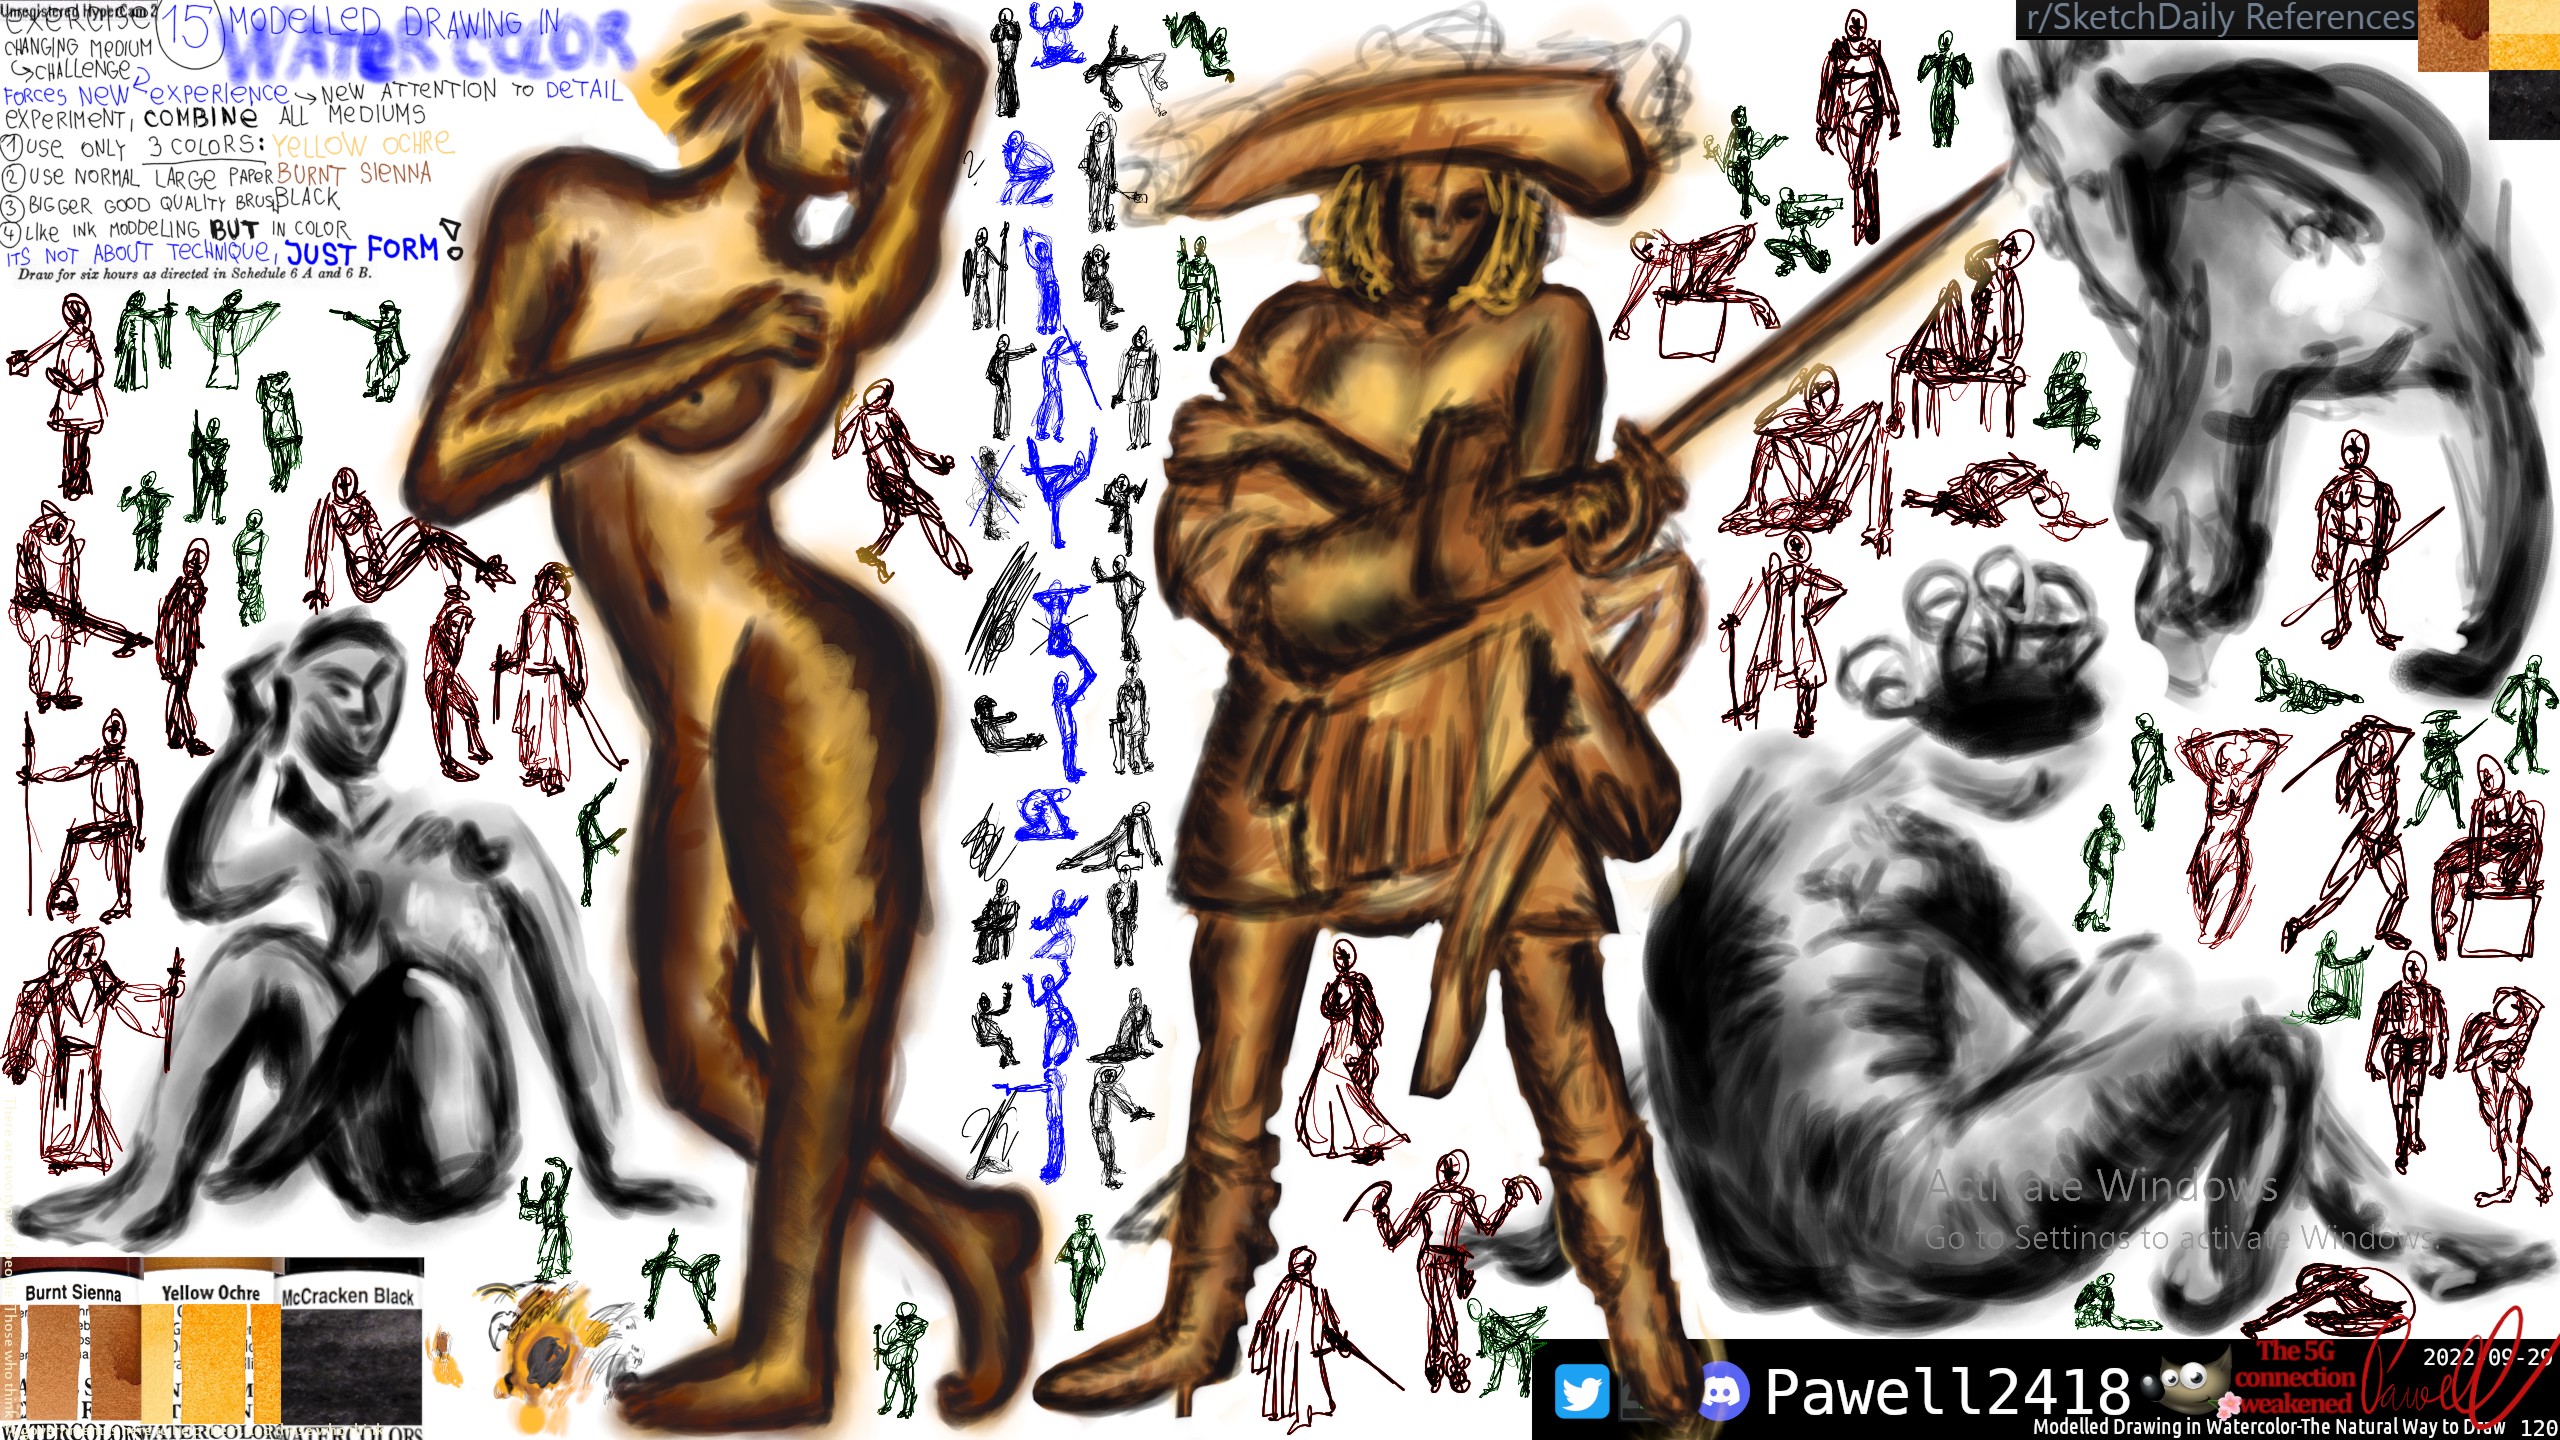 Unregistered HyperCam 2
exercise 15 MODELLED DRAWING IN
WATERCOLOR
CHANGING MEDIUM
CHALLENGE
FORCES NEW EXPERIENCE NEW ATTENTION TO DETAIL
EXPERIMENT, COMBINE ALL MEDIUMS
1 USE ONLY 3 COLORS: YELLOW OCHRE
2 USE NORMAL LARGE PAPER BURNT SIENNA
3 BIGGER GOOD QUALITY BRUS BLACK
4 LIKE INK MODDELING BUT IN COLOR
ITS NOT ABOUT TECHNIQUE, JUST FORM!
Draw for six hours as directed in Schedule 6 A and 6 B.
r/SketchDaily References
Activate Windows
Go to Settings to activate Windows.
Burnt Sienna
Yellow Ochre
McCracken Black
WATERCOLORS
WATERCOLORS
WATERCOLORS
Pawell2418
The 5G
connection
weakened
Pawell
2022-09-29
Modelled Drawing in Watercolor-The Natural Way to Draw 120